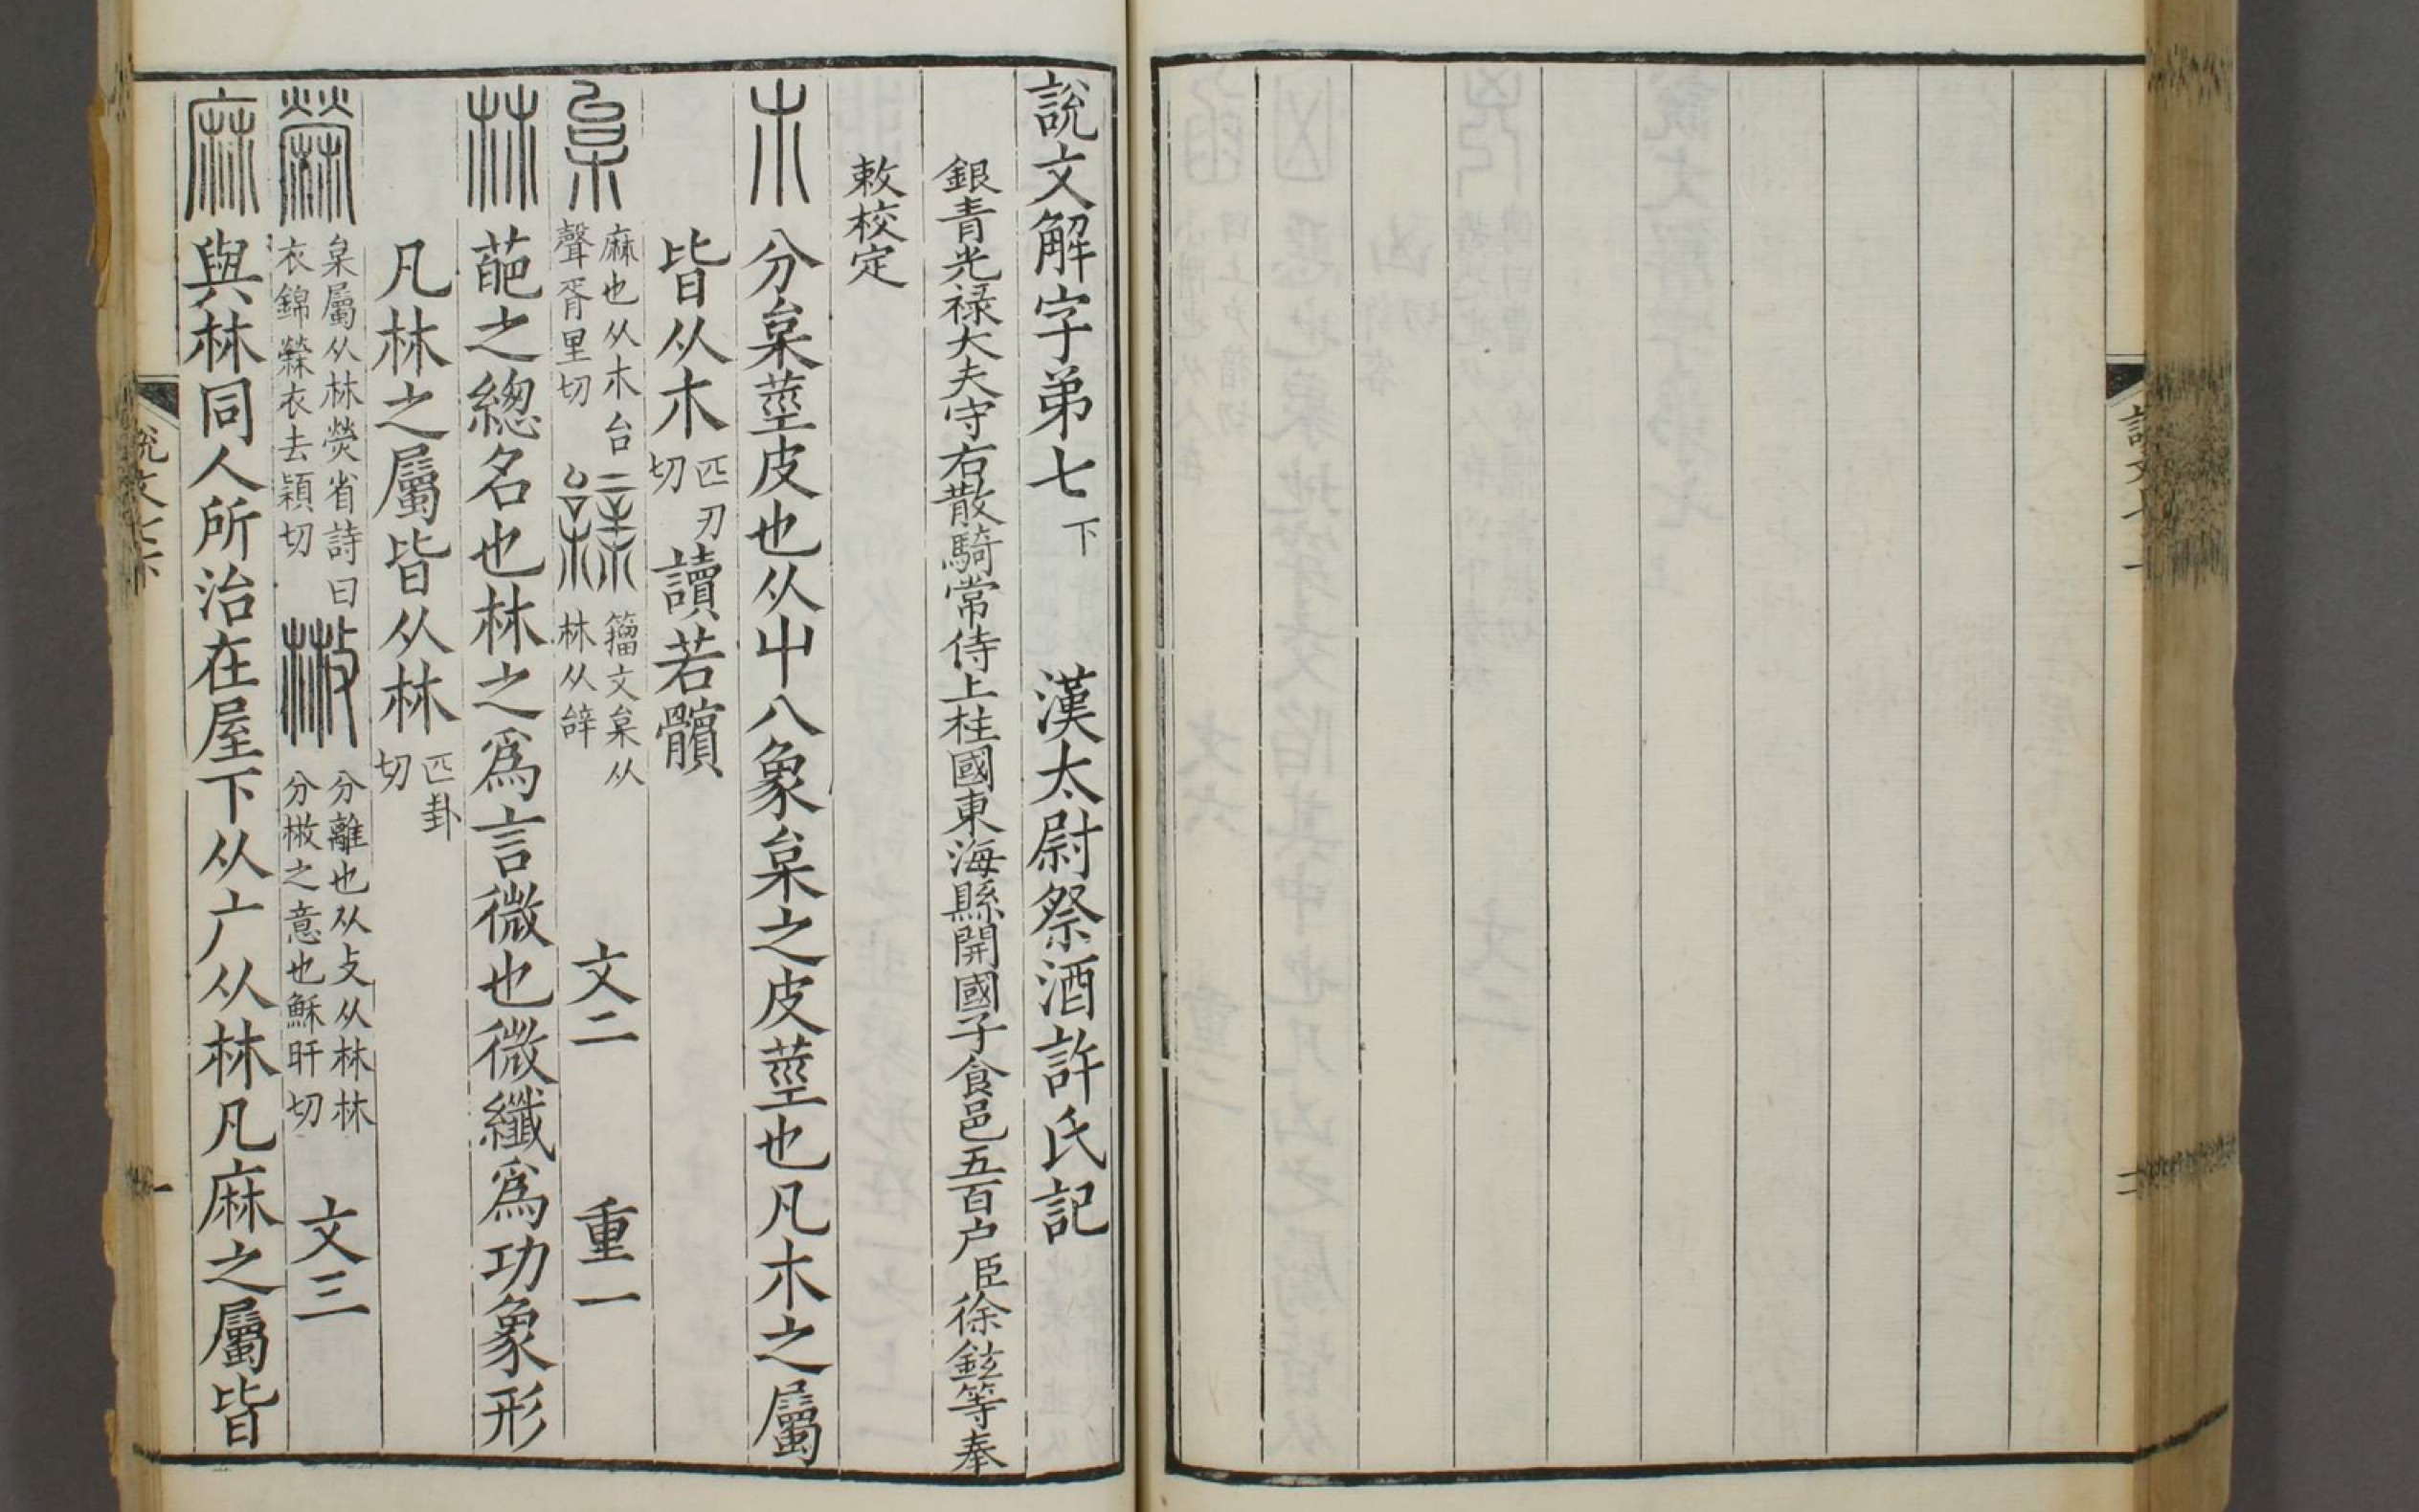 說文解字弟七下　漢太尉祭酒許氏記
銀青光祿大夫守右散騎常侍上柱國東海縣開國子食邑五百户臣徐鉉等奉
敕校定
𣎳　分枲莖皮也从屮八象枲之皮莖也凡𣎳之屬
皆从𣎳匹刃切讀若髕
枲　麻也从𣎳台聲胥里切　𦈊　籒文枲从𣏟从辝　文二　重一
𣏟　萉之總名也𣏟之爲言微也微纖爲功象形
凡𣏟之屬皆从𣏟匹卦切
檾　枲屬从𣏟熒省詩曰衣錦檾衣去穎切　𢻃　分離也从攴从𣏟𣏟分𢻃之意也穌旰切　文三
麻　與𣏟同人所治在屋下从广从𣏟凡麻之屬皆
說文七下
一
二